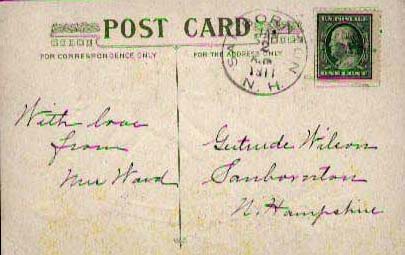 POST CARD
FOR CORRESPONDENCE ONLY
FOR THE ADDRESS ONLY
1911
N. H.
U.S. POSTAGE
ONE CENT
With love
from
Ward
Gertrude Wilson
Sanbornton
N. Hampshire